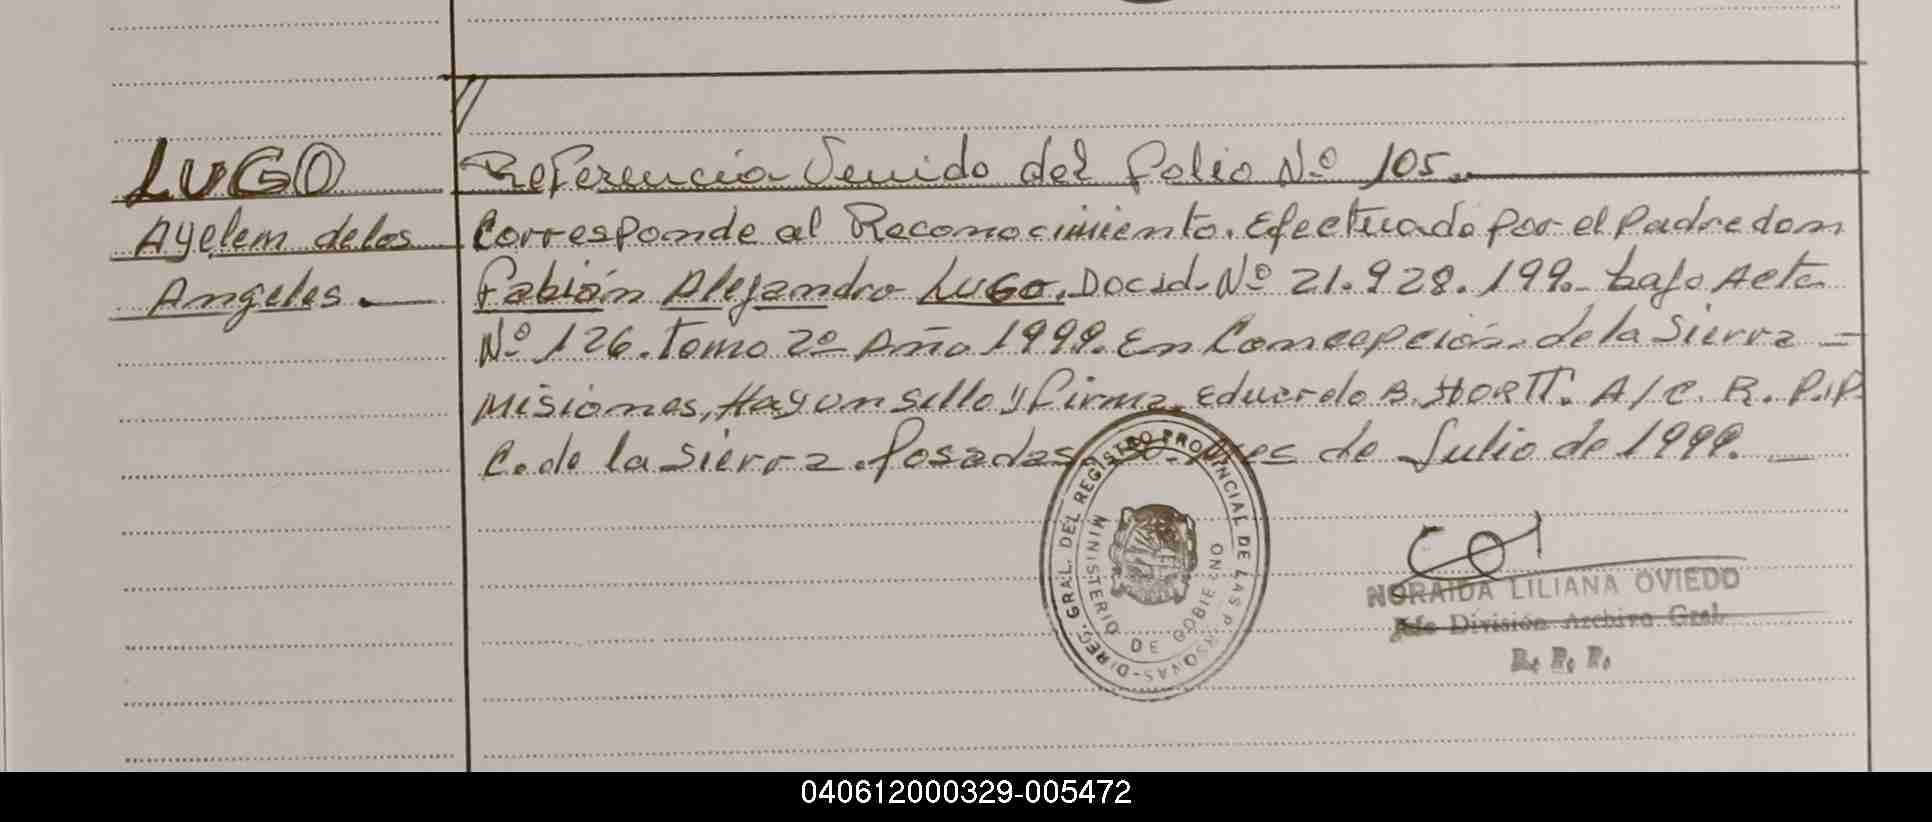 LUGO
Ayelem de los
Angeles.
Referencia Venido del folio Nº 105.
Corresponde al Reconocimiento. Efectuado por el Padre don
Fabián Alejandro Lugo. Doc. Id. Nº 21.928.199.- bajo Acta
Nº 126. Tomo 2º Año 1999. En Concepción de la Sierra -
Misiones, Hay un sello y firma. Eduardo B. HORTT. A/C. R. P. P.
C. de la Sierra. Posadas, de Julio de 1999.
DIREC. GRAL. DEL REGISTRO PROVINCIAL DE LAS PERSONAS-
MINISTERIO DE GOBIERNO
NORAIDA LILIANA OVIEDO
Jefe División Archivo Gral.
R. P. P.
040612000329-005472